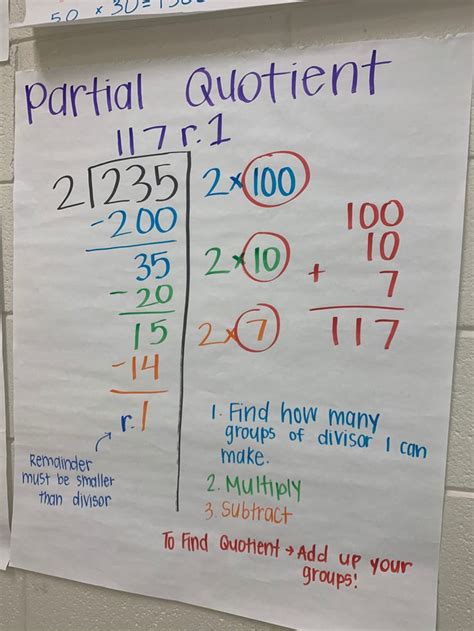 50 × 30 = 150
Partial Quotient
117 r.1
2 235 2×100
-200
100
35 2×10 10
-20 + 7
15 2×7 117
-14
r.1
1. Find how many
groups of divisor I can
make.
Remainder
must be smaller
than divisor
2. Multiply
3. Subtract
To Find Quotient → Add up your
groups!